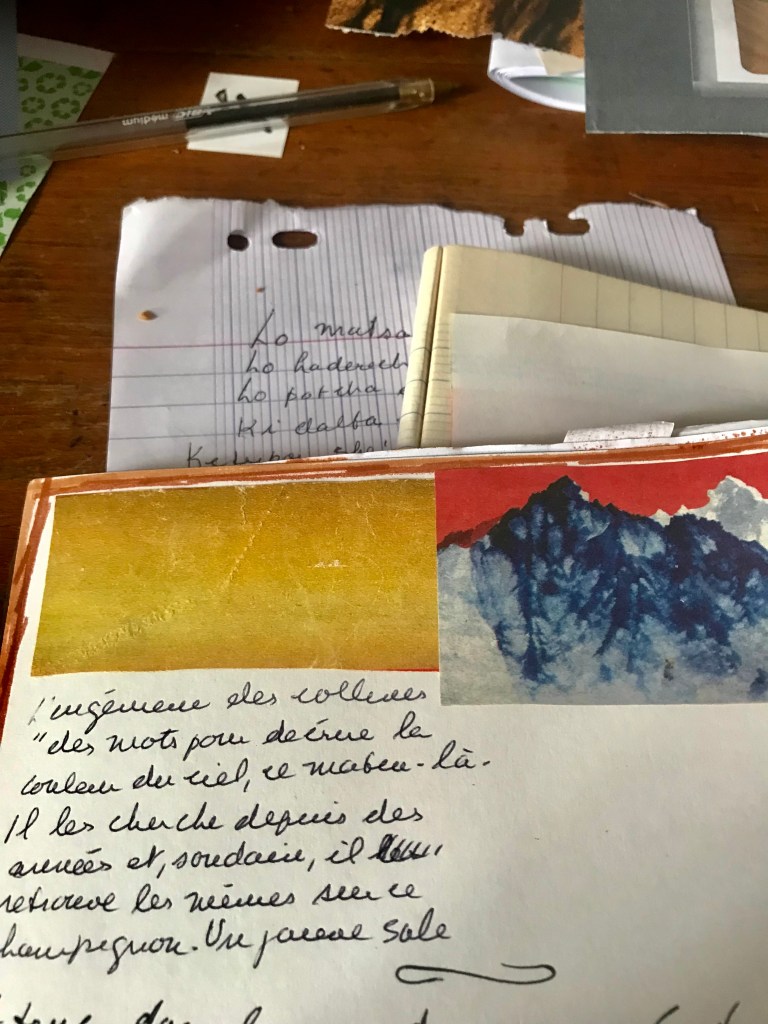 BIC médium
Lo matsa
Lo haderech
Lo patcha
Ki dalta
L'ingénieur des collines
"des mots pour décrire la
couleur du ciel, ce matin-là.
Il les cherche depuis des
années et, soudain, il
retrouve les mêmes sur ce
champignon. Un jaune sale